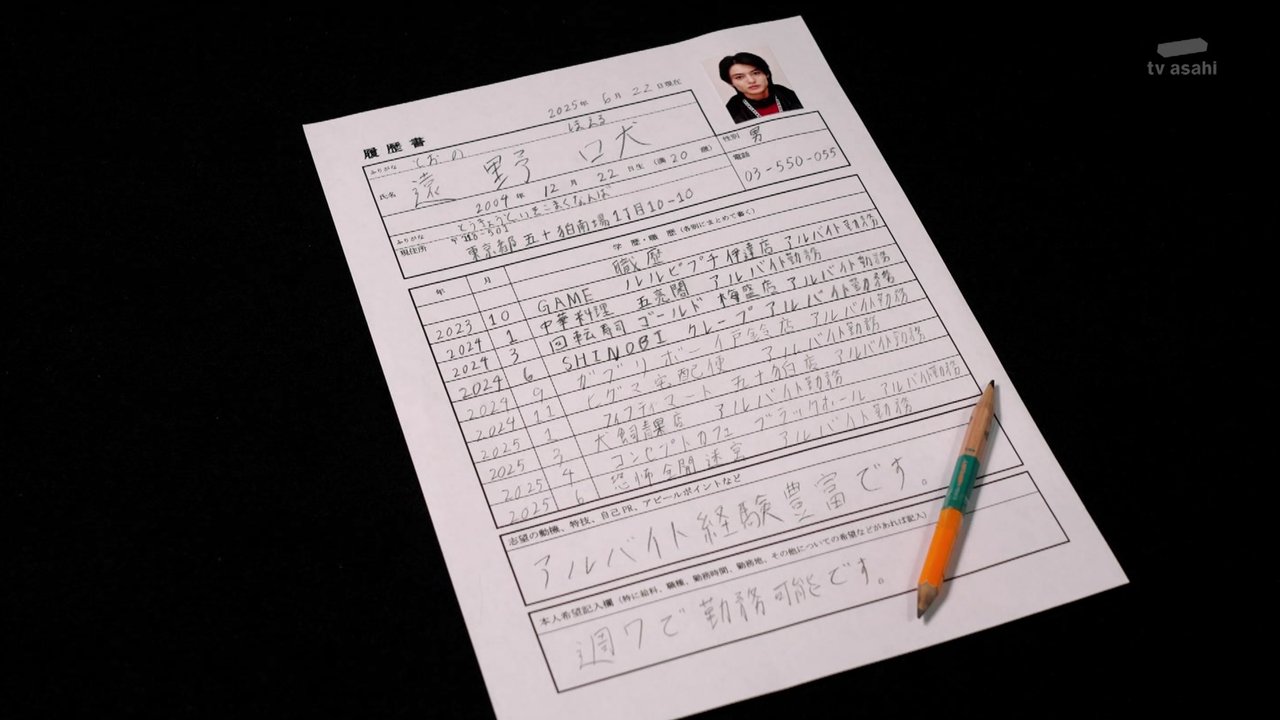 tv asahi
2025年 6月 22日現在
履歴書
ふりがな とおの ほえる
氏名 遠野 吠
性別 男
2004年 12月 22日生 (満 20 歳)
電話
03-550-055
ふりがな とうきょうといそこまくなんば
現住所 〒
東京都五十狛南場1丁目10-10
年 月 学歴・職歴 (各別にまとめて書く)
職歴
2023 10 GAME ルルピプチ 伊達店 アルバイト勤務
2024 1 中華料理 五亮閣 アルバイト勤務
2024 3 回転寿司 ゴールド 梅盛店 アルバイト勤務
2024 6 SHINOBI クレープ アルバイト勤務
2024 9 ガブリボーイ 戸鈴店 アルバイト勤務
2024 11 ヒグマ宅配便 アルバイト勤務
2025 1 フィフティマート 五十狛店 アルバイト勤務
2025 3 犬飼青果店 アルバイト勤務
2025 4 コンセプトカフェ ブラックホール アルバイト勤務
2025 6 恐怖全開迷宮 アルバイト勤務
志望の動機、特技、自己PR、アピールポイントなど
アルバイト経験豊富です。
本人希望記入欄 (特に給料、職種、勤務時間、勤務地、その他についての希望などがあれば記入)
週7で勤務可能です。